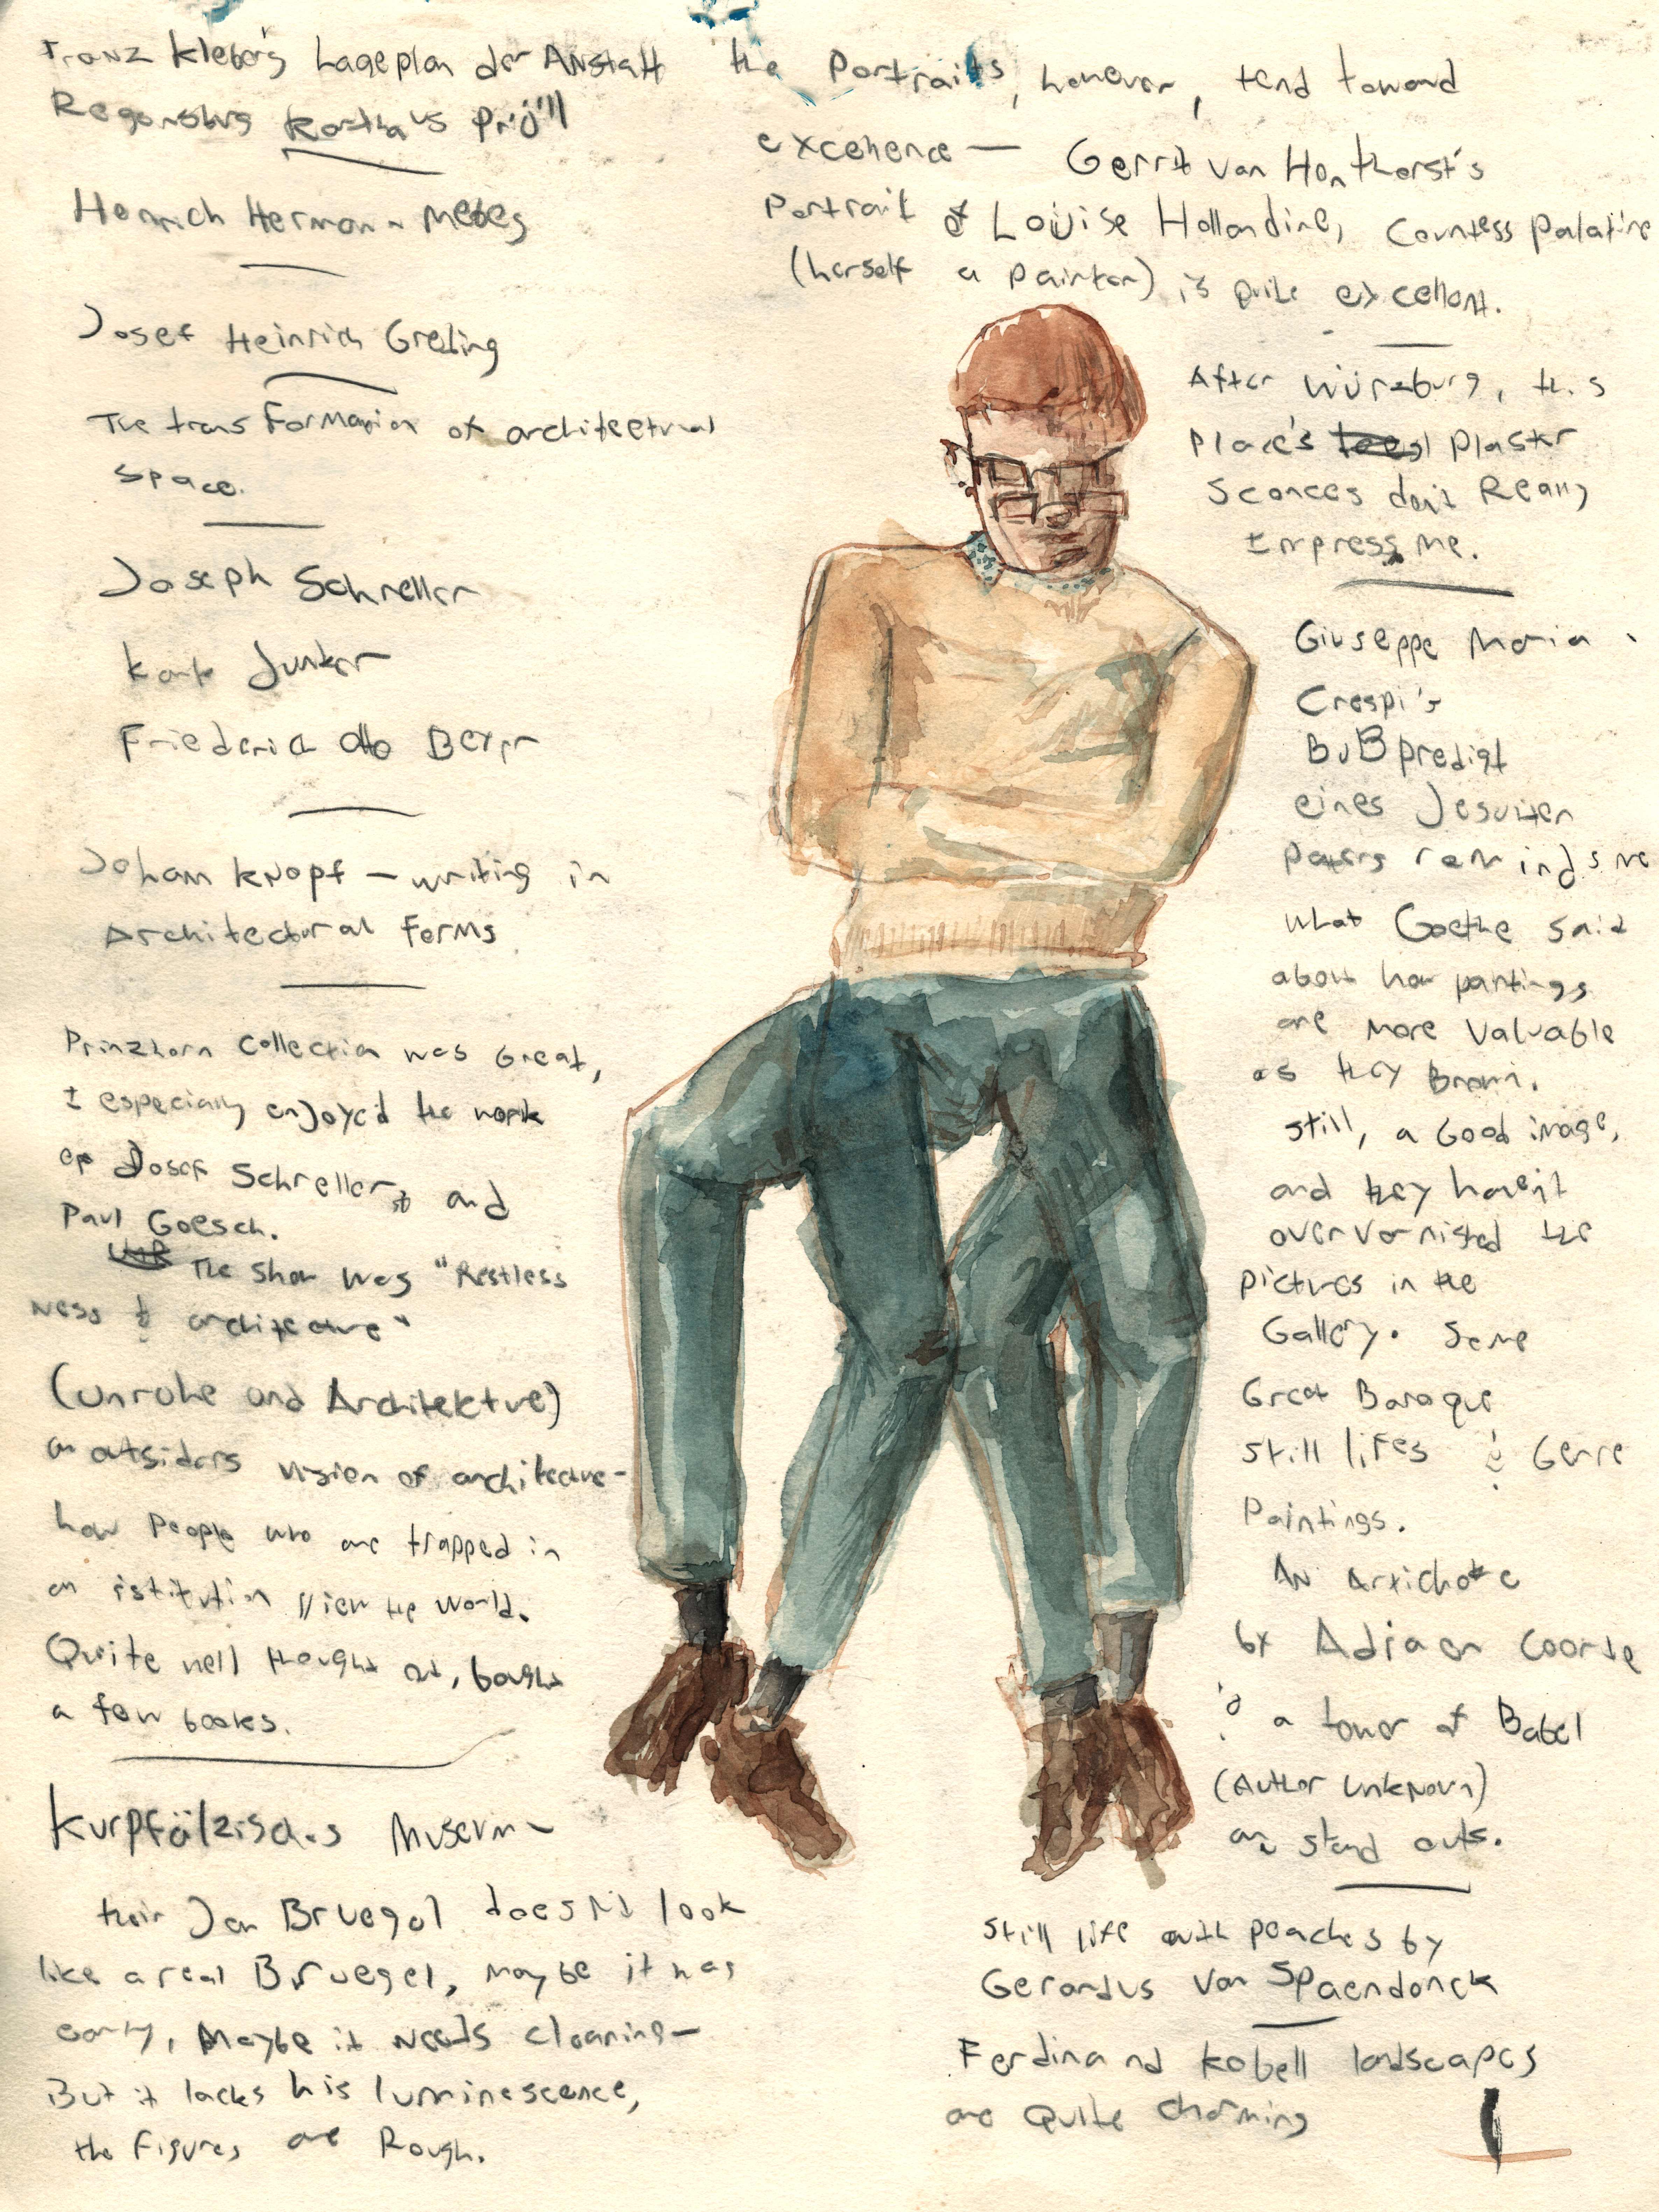 Franz Kleber's Lageplan der Anstalt
Regensburg Karthaus Prüll
Heinrich Hermann Mebes
Josef Heinrich Grebing
The transformation of architectural
space.
Joseph Schneller
Karl Junker
Friederich Otto
Johann Knopf — writing in
Architectural Forms
Prinzhorn Collection was Great,
I especially enjoyed the work
of Josef Schreller and
Paul Goesch.
The show was "Restless
ness & architecture"
(Unruhe and Architekture)
an outsiders vision of architecture-
how people who are trapped in
an istitution view the world.
Quite well thought out, bought
a few books.
Kurpfälzisches Museum—
their Jan Bruegel doesn't look
like a real Bruegel, maybe it was
early, Maybe it needs cleaning—
But it lacks his luminescence,
the Figures are Rough.
the Portraits, however, tend toward
excellence — Gerrit van Honthorst's
Portrait of Louise Hollandine, Countess Palatine
(herself a painter) is quite excellent.
After Würzburg, this
place's plaster
Sconces don't Really
Impress me.
Giuseppe Maria
Crespi's
Bußpredigt
eines Jesuiten
Paters reminds me
what Goethe said
about how paintings
are more valuable
as they Brown.
still, a Good image,
and they haven't
overvarnished the
pictures in the
Gallery. Some
Great Baroque
still lifes & Genre
Paintings.
An Artichoke
by Adriaen Coorte
& a tower of Babel
(Author Unknown)
are stand outs.
Still life with peaches by
Gerardus Van Spaendonck
Ferdinand Kobell landscapes
are Quite charming